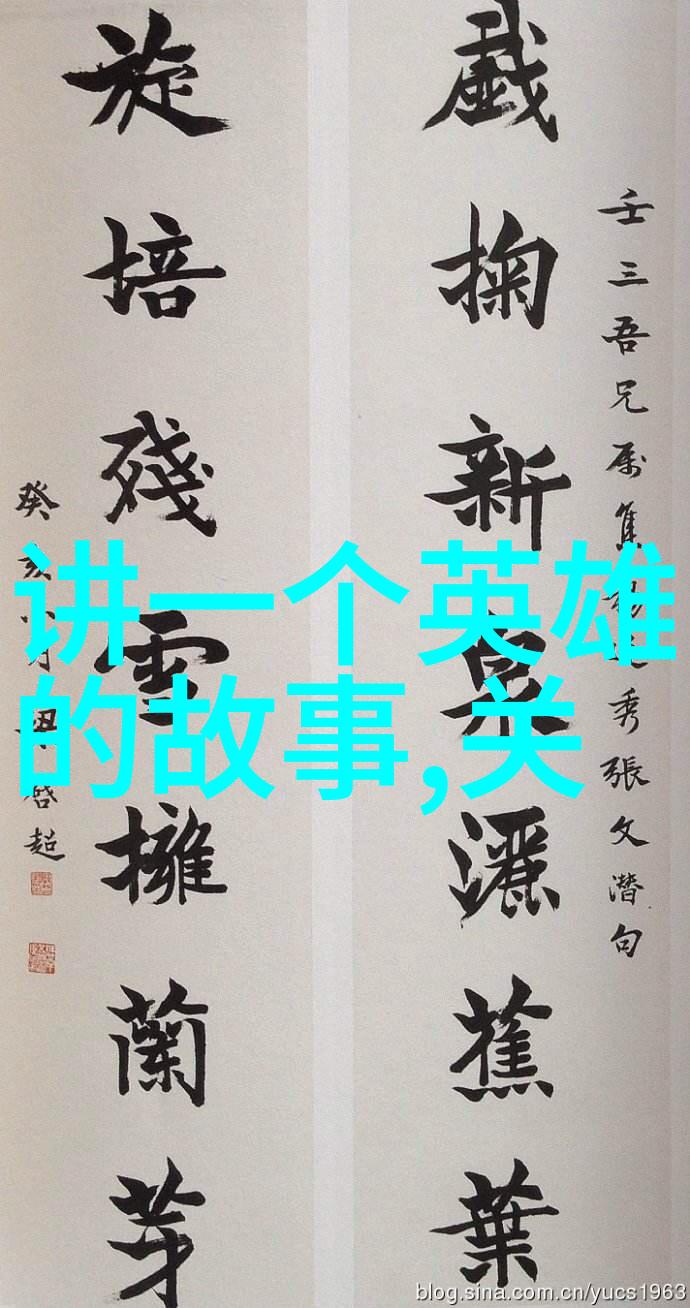 壬三吾兄属集秀張文潛句
戲掬新泉灑蕉葉
旋培殘雪擁蘭芽
癸亥啓超
讲一个英雄
的故事,关
blog.sina.com.cn/yucs1963